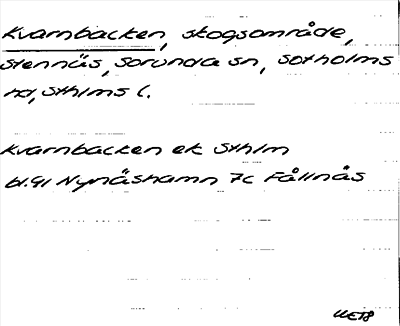 Kvarnbacken, skogsområde,
Stennäs, Sorunda sn, Sotholms
hd, Sthlms l.
Kvarnbacken ek Sthlm
bl.91 Nynäshamn 7c Fållnäs